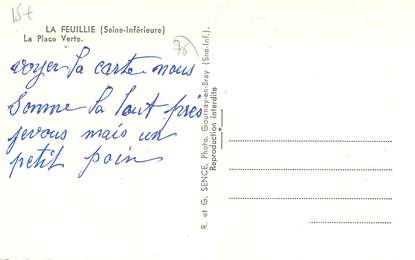 15+
LA FEUILLIE (Seine-Inférieure)
La Place Verte.
76
voyer la carte nous
somme la tout pres
jevous mais un
petit poin
R. et G. SENCE, Photo. Gournay-en-Bray (Sne-Inf.).
Reproduction interdite